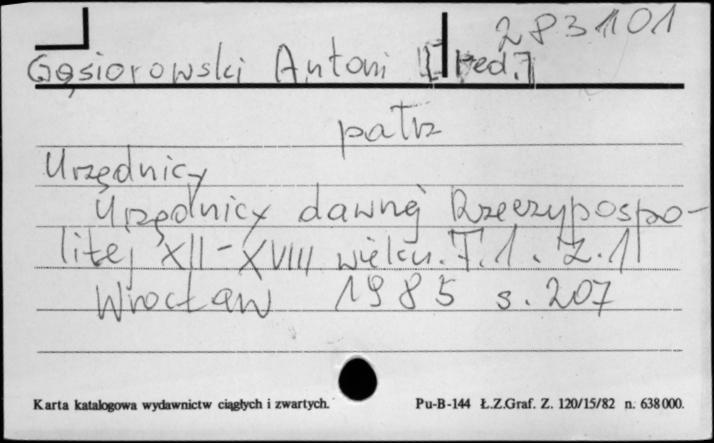 283101
Gąsiorowski Antoni [red.]
patrz
Urzędnicy
Urzędnicy dawnej Rzeczypospo-
litej XII-XVIII wieku. T.1. Z.1
Wrocław 1985 s. 207
Karta katalogowa wydawnictw ciągłych i zwartych. Pu-B-144 Ł.Z.Graf. Z. 120/15/82 n. 638000.